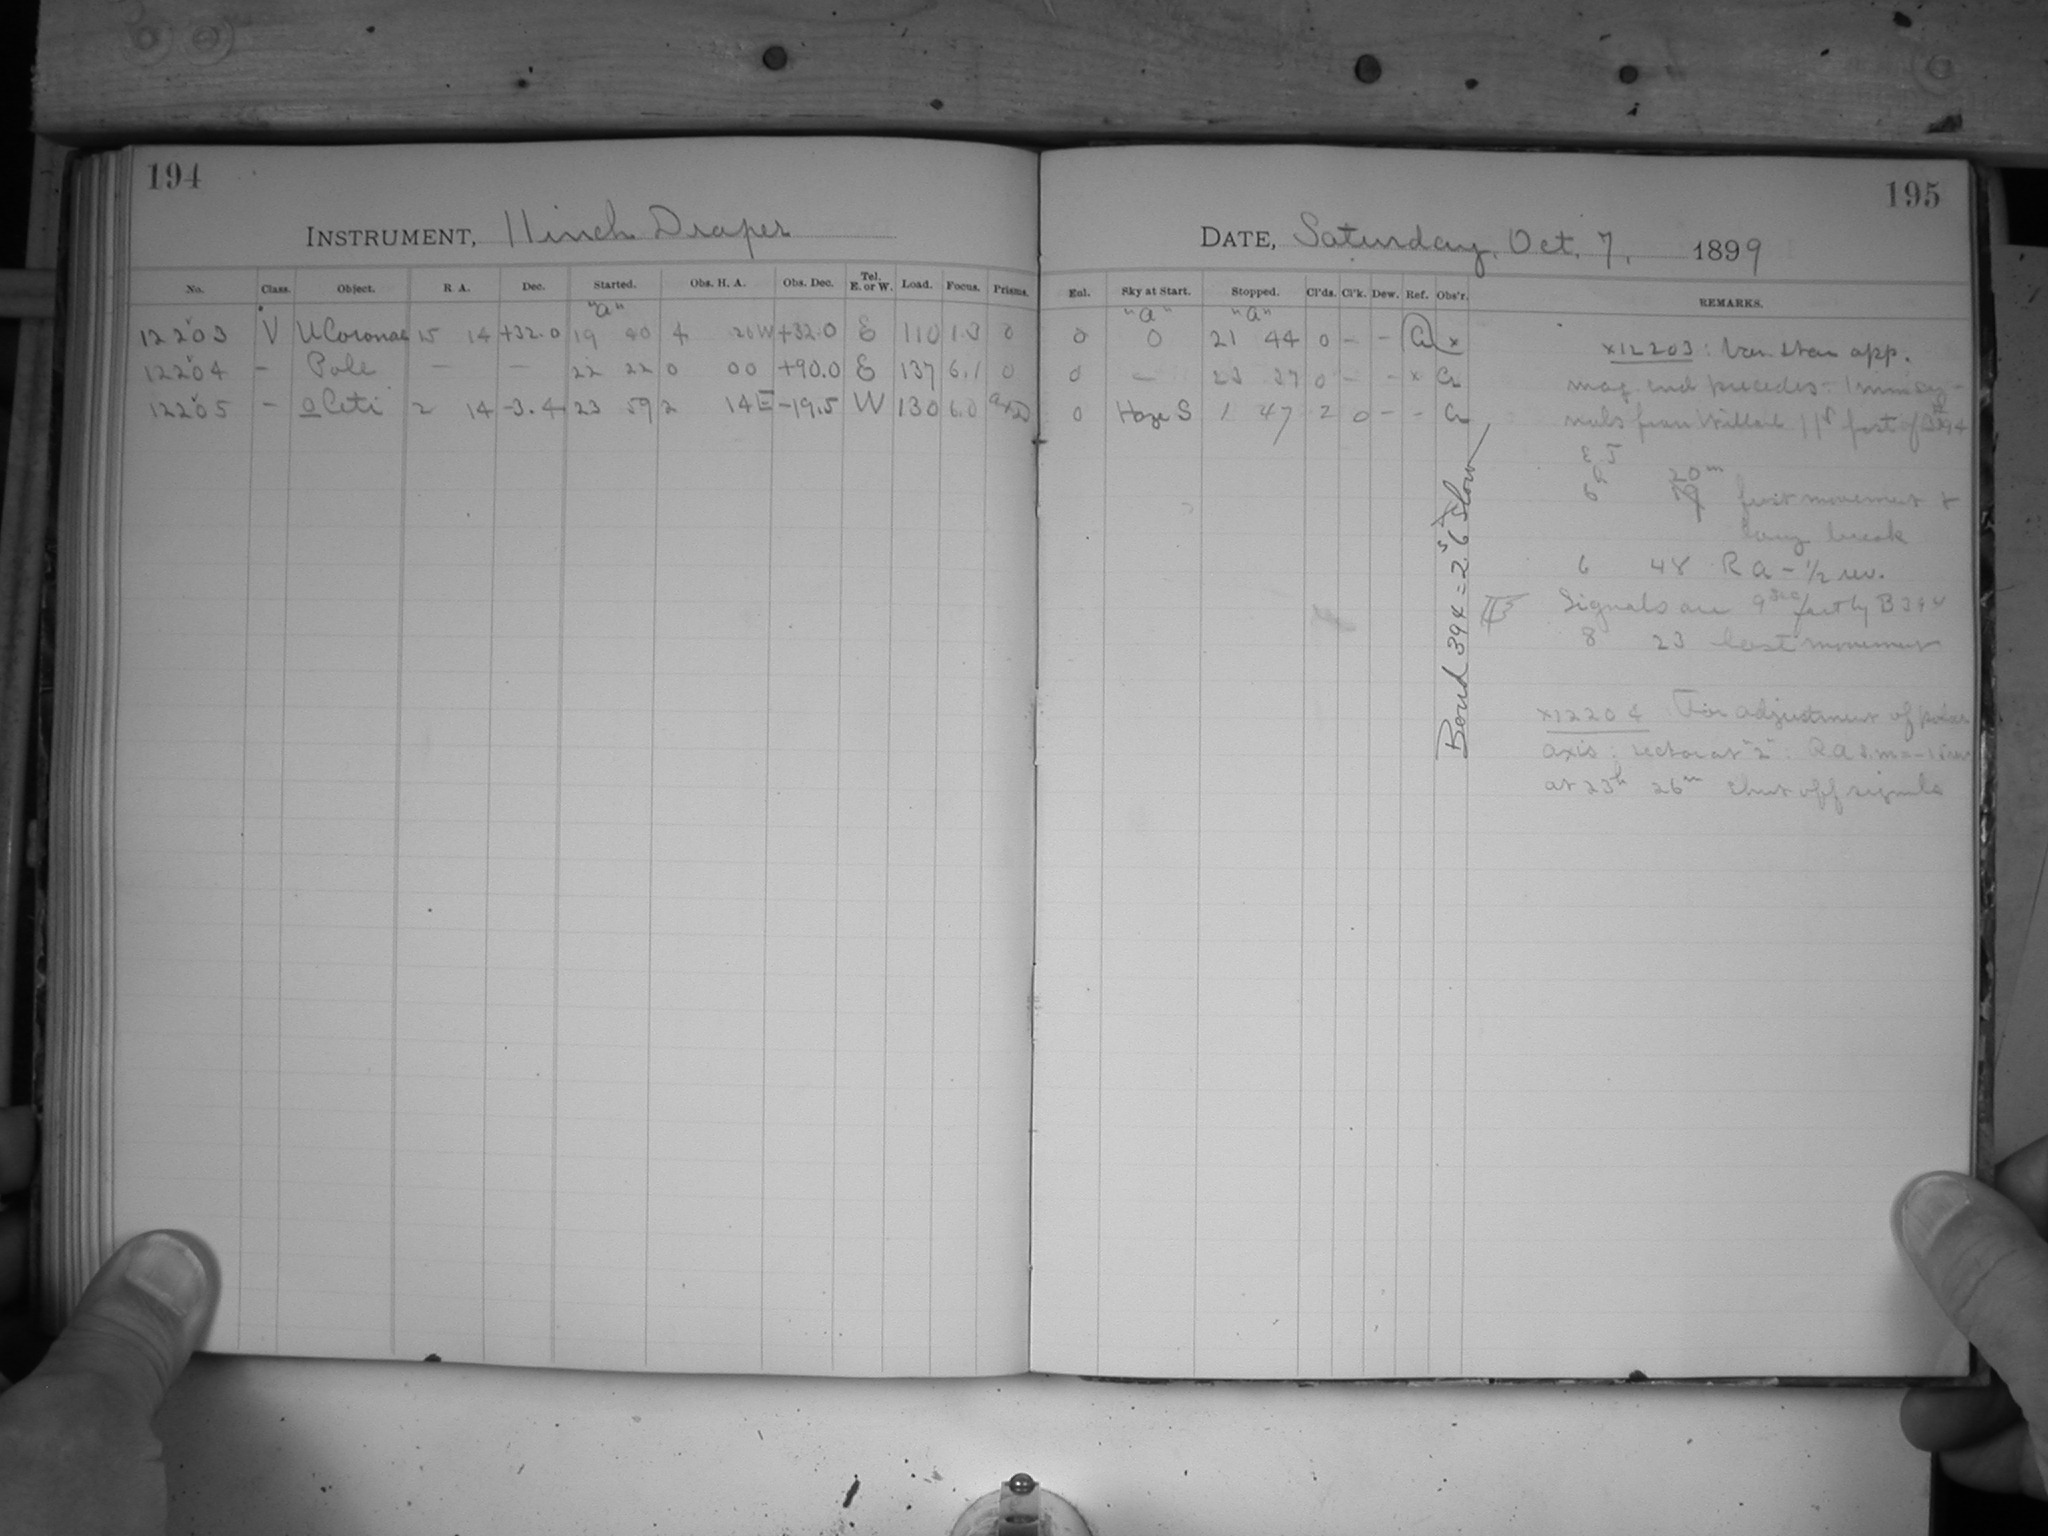 194
INSTRUMENT, 11 inch Draper
No. Class. Object. R A. Dec. Started. Obs. H. A. Obs. Dec. Tel. E. or W. Load. Focus. Prisms.
"a"
12203 V U Coronae 15 14 +32.0 19 40 4 20 W +32.0 E 110 0
12204 – Pole – – 22 22 0 00 +90.0 E 137 6.1 0
12205 – o Ceti 2 14 -3.4 23 59 2 14 E -19.5 W 130 6.0
195
DATE, Saturday, Oct. 7, 1899
Eul. Sky at Start. Stopped. Cl'ds. Cl'k. Dew. Ref. Obs'r. REMARKS.
"a" "a"
0 0 21 44 0 – – x
0 – 23 37 0 – – x
0 Haze S 1 47 2 0 – –
Bond 394 = 2.6 s Slow
x12203: Van Star app.
mag. end precedes. 1 min sig-
nals from Willard 11s fast of B394
6 20m first movement &
long break
6 48 R a – 1/2 rev.
Signals are 9 sec fast by B 394
8 23 last movement
x12204 For adjustment of polar
axis: at "2".
at 23h 26m shut off signals